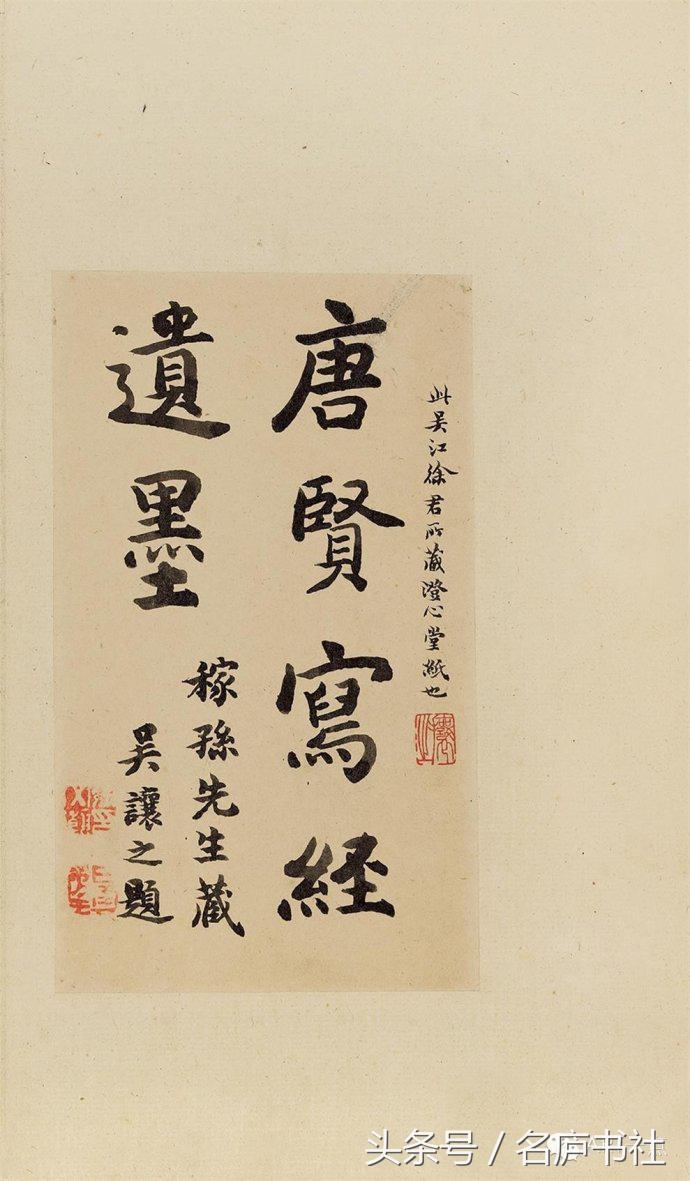 此吴江徐君所藏澄心堂紙也
唐賢寫経
遺墨
稼孫先生藏
吴讓之題
头条号 / 名庐书社